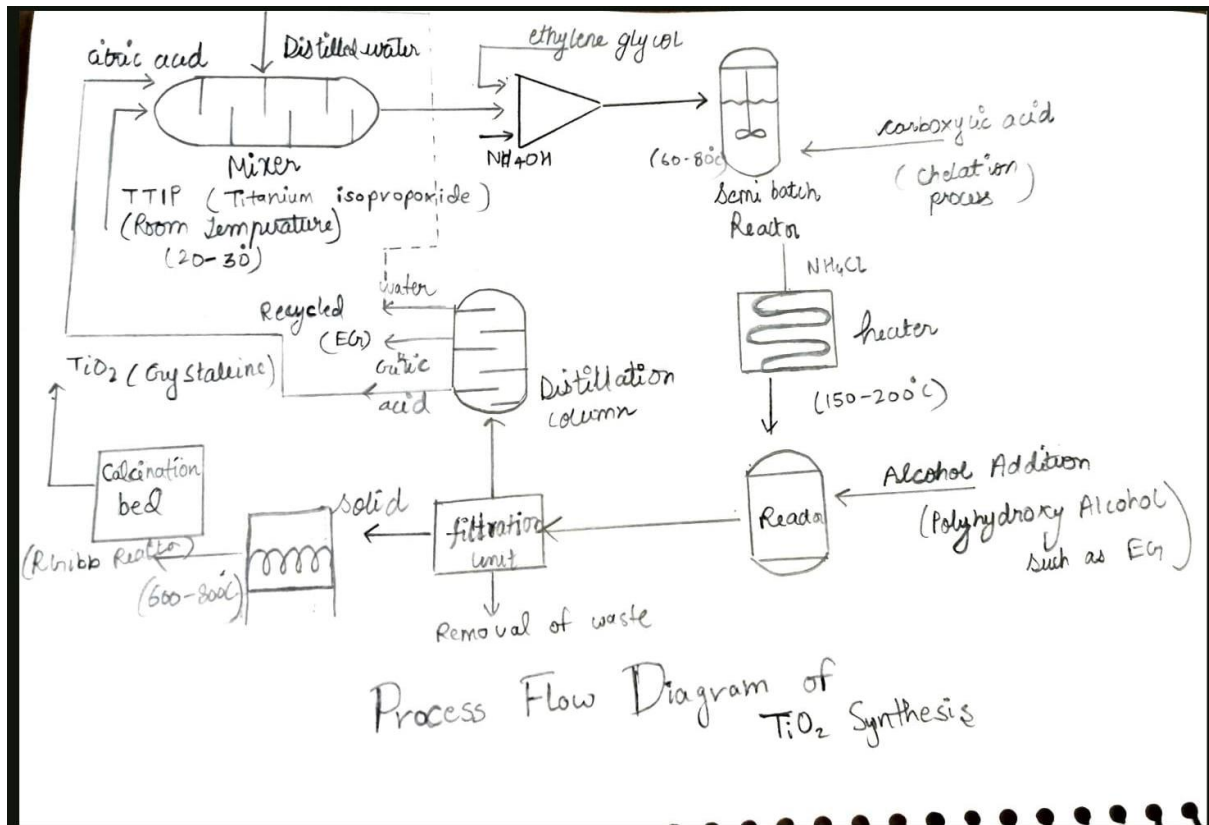 citric acid
Distilled water
ethylene glycol
Mixer
TTIP (Titanium isopropoxide)
(Room Temperature)
(20-30)
NH4OH
(60-80°C)
Semi batch
Reactor
carboxylic acid
(Chelation
process)
NH4Cl
heater
(150-200°C)
Recycled
water
(EG)
Citric
acid
Distillation
column
TiO2 (Crystalline)
Calcination
bed
(RGibb Reactor)
(600-800°C)
solid
filtration
unit
Removal of waste
Reactor
Alcohol Addition
(Polyhydroxy Alcohol
such as EG)
Process Flow Diagram of
TiO2 Synthesis